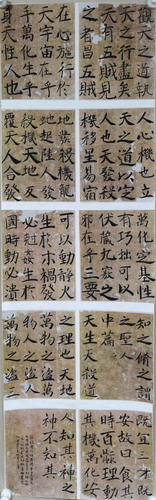 觀天之道執
天之行盡矣
天有五賊見
之者昌五賊
在心施行於
天宇宙在乎
手萬化生乎
身天性人也
人心機也立
天之道以定
人也天發殺
機移星易宿
地發殺機龍
蛇起陸人發
殺機天地反
覆天人合發
萬化定基性
有巧拙可以
伏藏九竅之
邪在乎三要
可以動靜火
生於木禍發
必剋姦生於
國時動必潰
知之修之謂
之聖人
中篇
天生天殺道
之理也天地
萬物之盜萬
物人之盜人
萬物之盜三
既宜三才既
安故曰食其
時百骸理動
其機萬化安
人知其神之
神不知其